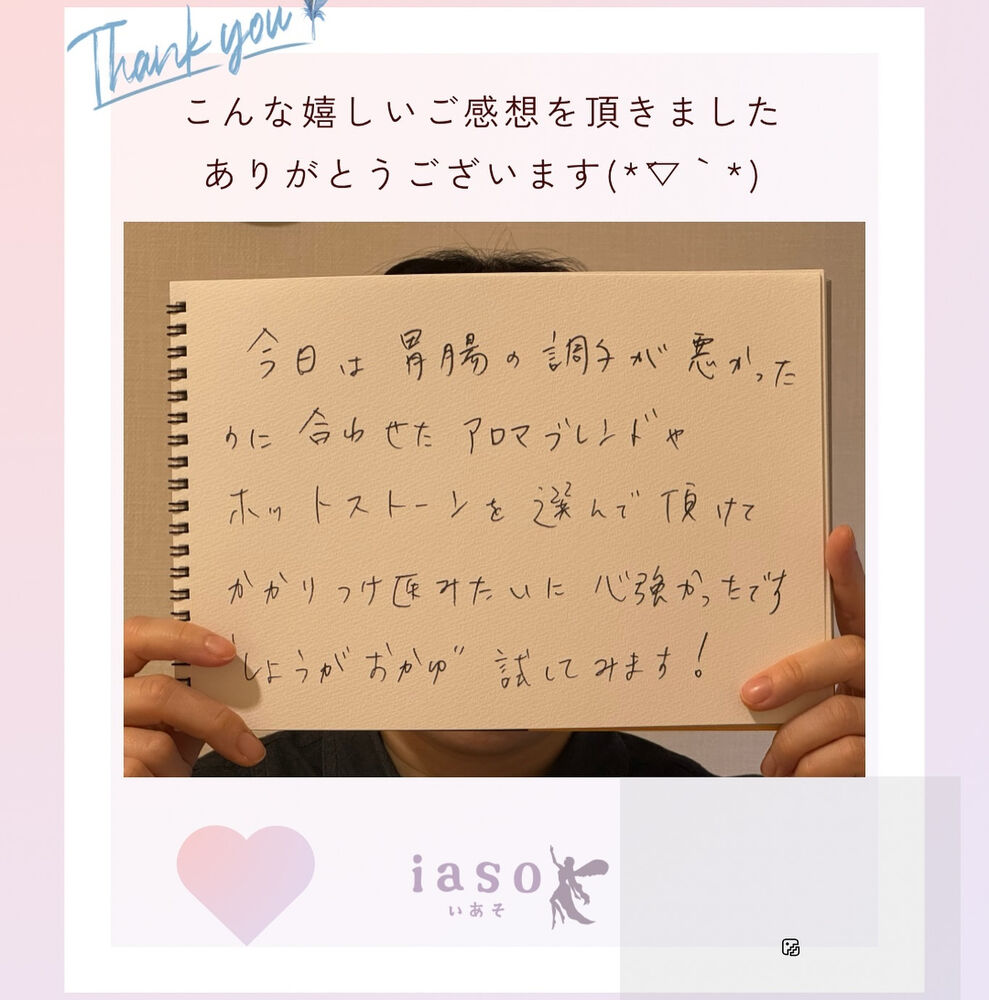 Thank you
こんな嬉しいご感想を頂きました
ありがとうございます(*▽｀*)
今日は胃腸の調子が悪かった
のに合わせたアロマブレンドや
ホットストーンを選んで頂けて
かかりつけ医みたいに心強かったです
しょうがおかゆ゛試してみます！
iaso
いあそ